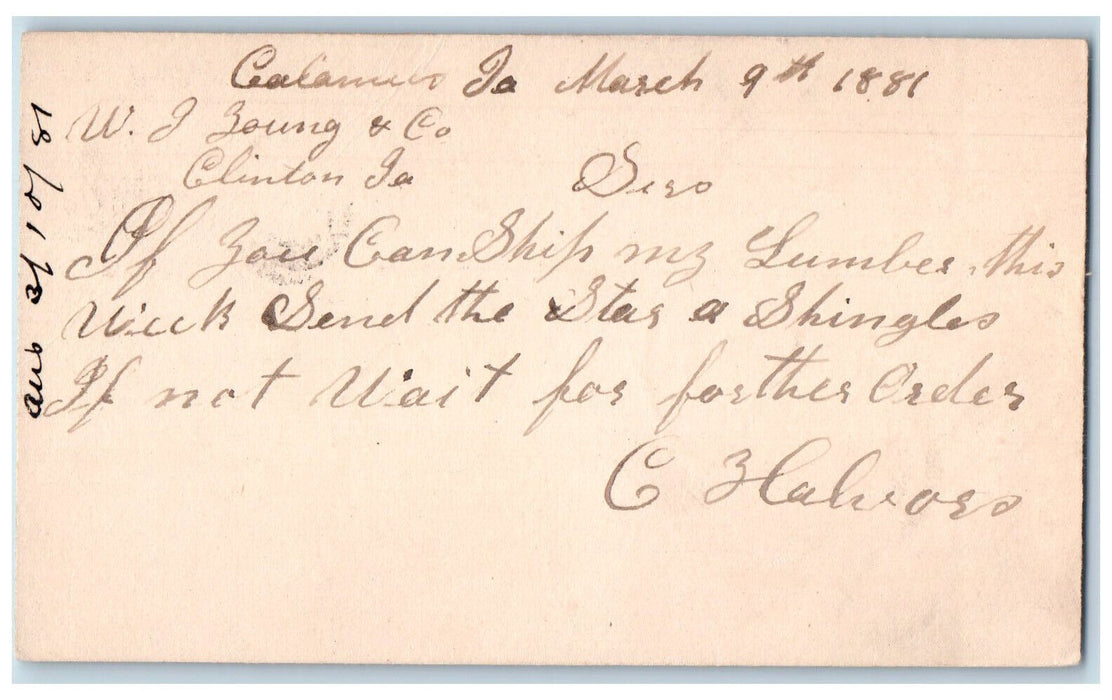 Calamus Ia March 9th 1881
W. J Young & Co
Clinton Ia Sirs
If You Can Ship my Lumber, this
Week Send the Star a Shingles
If not Wait for forther Order
C
ans 3/10/81